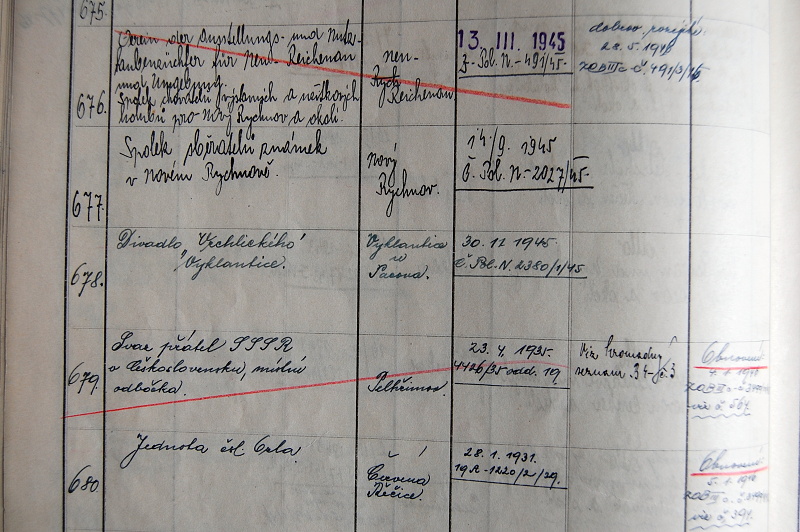 675.
676.
Verein der Ausstellungs- und Nutz-
taubenzüchter für Neu-Reichenau
und Umgebung.
Spolek chovatelů výstavních a užitkových
holubů pro Nový Rychnov a okolí.
neu-
Rych
Reichenau.
13. III. 1945
Z-Pol. N.-491/45
dobrov.
28. 5. 1946
677.
Spolek sběratelů známek
v Novém Rychnově.
Nový
Rychnov.
14./9. 1945
Č. Pol. N.-2027/45-
678.
Divadlo "Vrchlického"
Vyklantice.
Vyklantice
u
Pacova.
30. 11 1945.
Č. Pol. N. 2380/1/45
679.
Svaz přátel SSSR
v Československu, místní
odbočka.
Pelhřimov
23. 4. 1935.
4426/35 odd. 19.
Viz hromadný
seznam 34-č.3
Obnoveno
viz č. 564.
680
Jednota čsl. Orla.
Červená
Řečice.
28. 1. 1931.
19A-1220/2/29.
Obnoveno
viz č. 391.